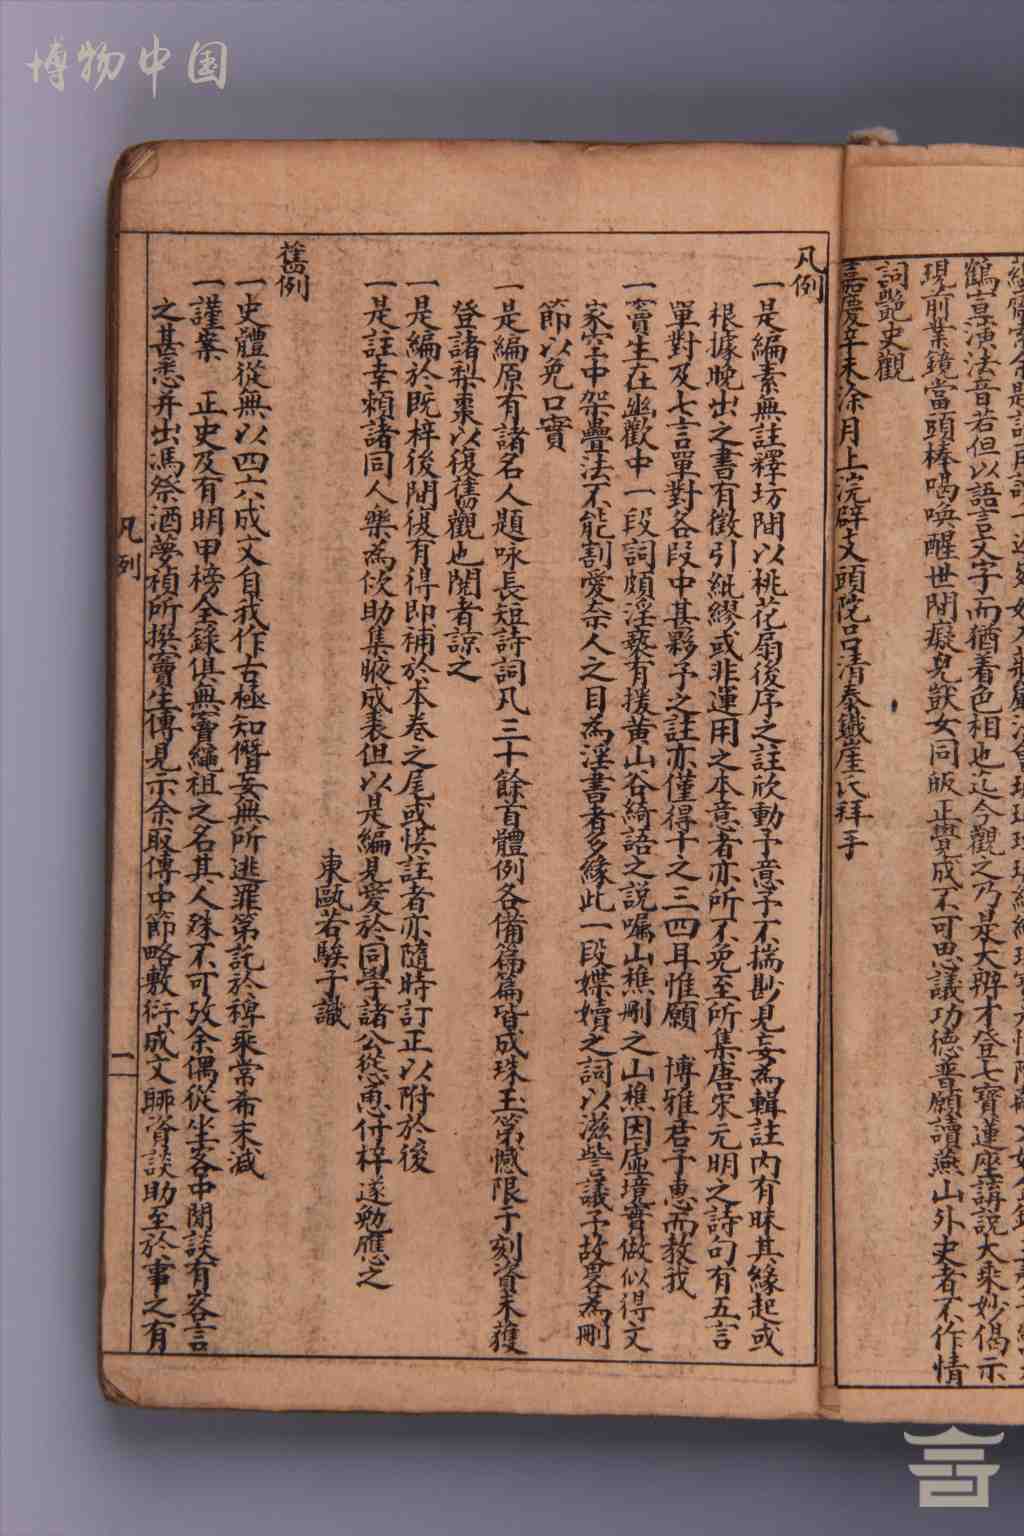 博物中国
鶴真演法音若但以語言文字而猶着色相也迄今觀之乃是大辨才登七寶蓮座講說大乘妙偈示
現前業鏡當頭棒喝喚醒世間癡兒獃女同皈正覺成不可思議功德普願讀燕山外史者不作情
詞艷史觀
嘉慶辛未涂月上浣辟支頭陀呂清泰鐵崖氏拜手
凡例
一是編素無註釋坊間以桃花扇後序之註欣動予意予不揣尠見妄為輯註內有昧其緣起或
根據晚出之書有徵引紕繆或非運用之本意者亦所不免至所集唐宋元明之詩句有五言
單對及七言單對各段中甚夥予之註亦僅得十之三四耳惟願 博雅君子惠而教我
一竇生在幽歡中一段詞頗淫褻有援黃山谷綺語之說囑山樵刪之山樵因虛境實做似得文
家空中架疊法不能割愛奈人之目為淫書者多緣此一段媟嬻之詞以滋訾議予故畧為刪
節以免口實
一是編原有諸名人題咏長短詩詞凡三十餘首體例各備篇篇皆成珠玉第憾限于刻資未獲
登諸梨棗以復舊觀也閱者諒之
一是編於既梓後間復有得即補於本卷之尾或悞註者亦隨時訂正以附於後
一是註幸賴諸同人樂為佽助集腋成裘但以是編見愛於同學諸公慫恿付梓遂勉應之
東甌若騃子識
舊例
一史體從無以四六成文自我作古極知僭妄無所逃罪第託於稗乘常希末減
一謹案 正史及有明甲榜全錄俱無竇繩祖之名其人殊不可攷余偶從坐客中閒談有客言
之甚悉并出馮祭酒夢楨所撰竇生傳見示余取傳中節略敷衍成文聊資談助至於事之有
凡例
二